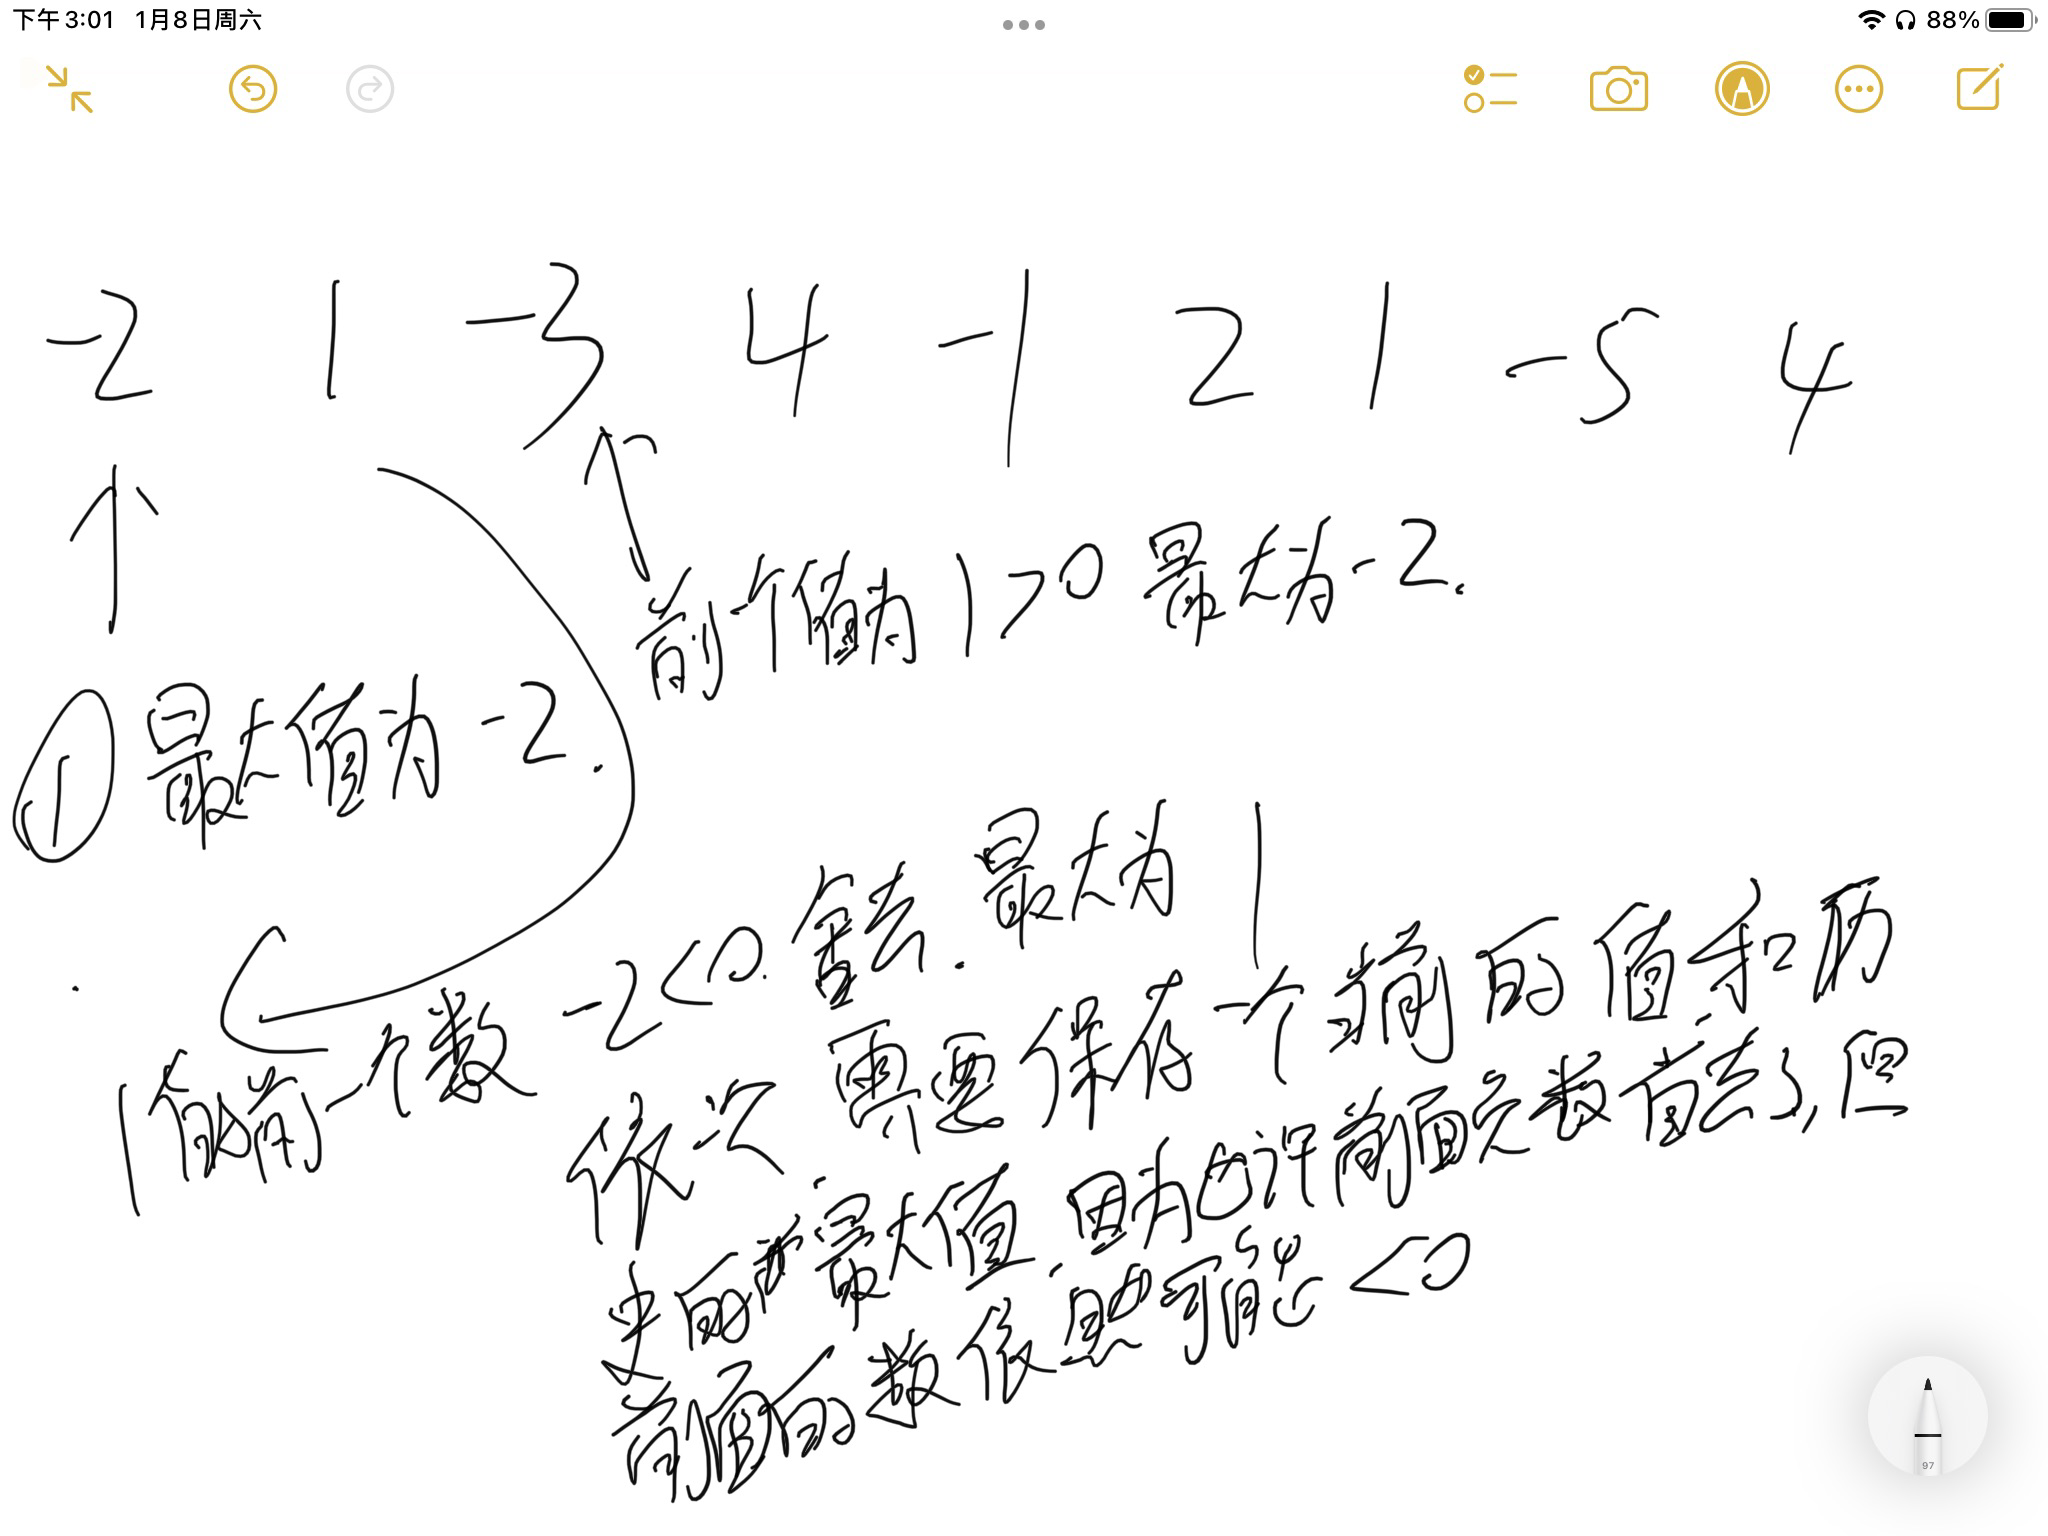 下午3:01 1月8日周六
88%
-2 1 -3 4 -1 2 1 -5 4
前一个值为1>0 最大为-2.
① 最大值为-2.
1的前一个数 -2<0. 舍去. 最大为1
依次. 需要保存一个前的值和历
史的最大值. 因为也许前面负数舍去了, 但
前面的数依然可能<0
97